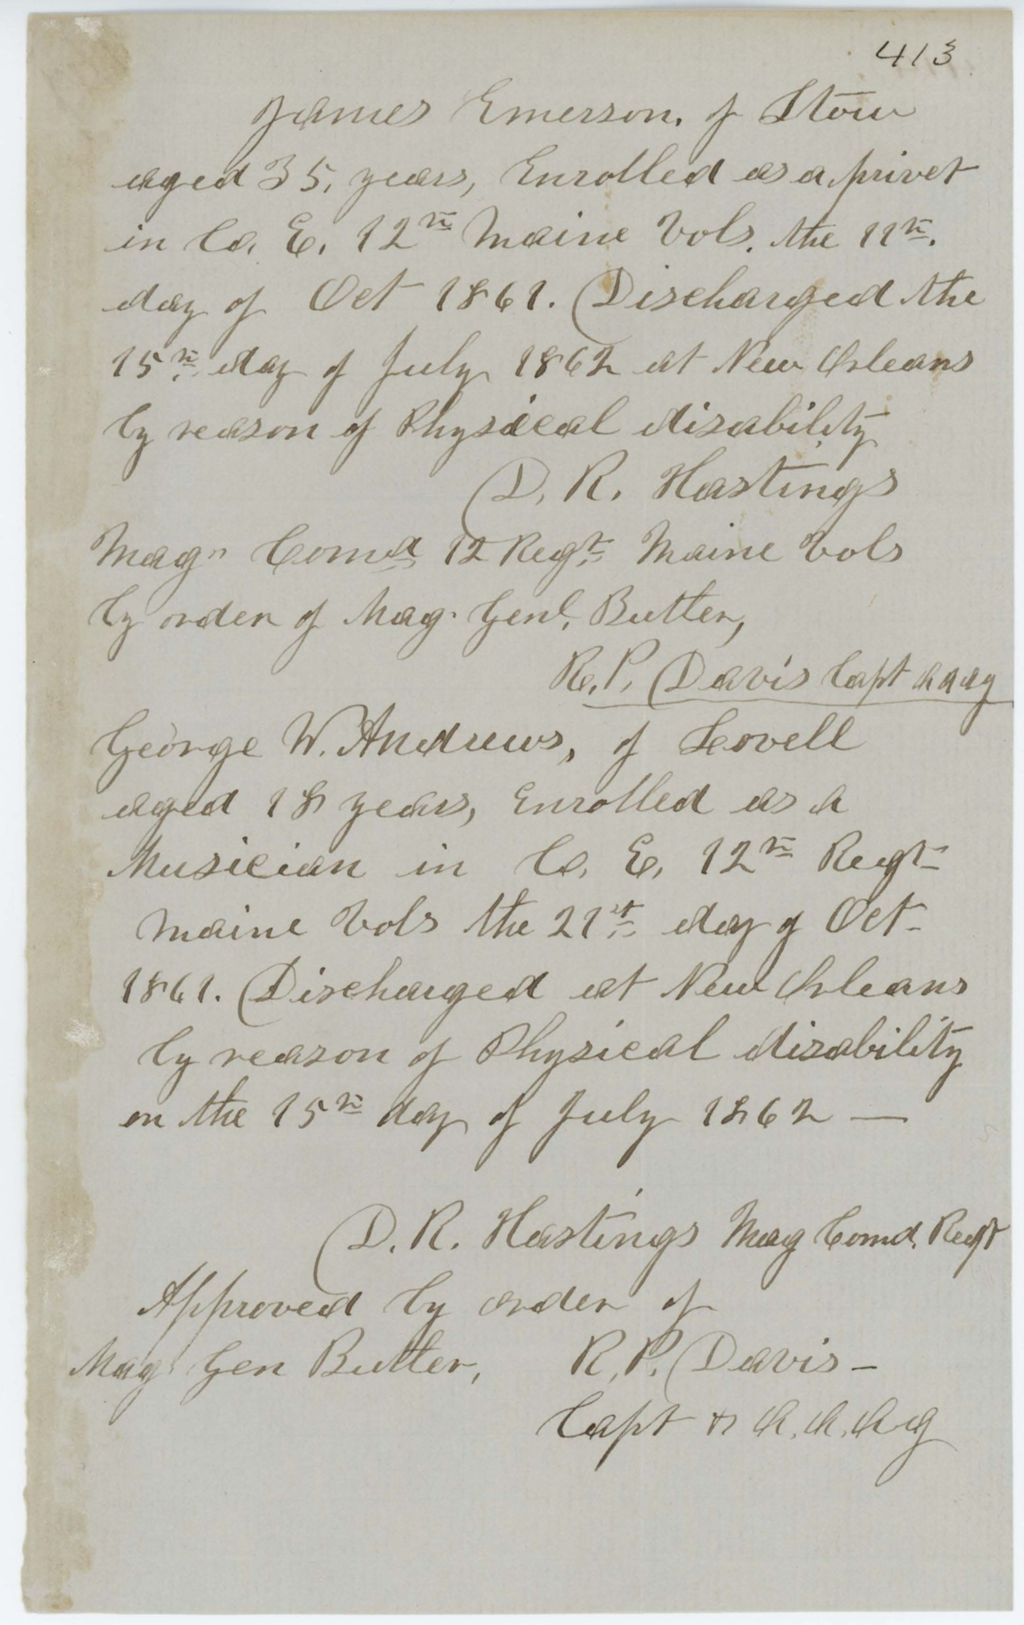 413
James Emerson. of Stow
aged 35, years, Enrolled as a privet
in Co. E. 12th Maine Vols. the 11th.
day of Oct 1861. Discharged the
15th day of July 1862 at New Orleans
by reason of Physical disability
D. R. Hastings
Mag" Comd 12 Regt Maine Vols
by order of Mag. Genl. Butler,
R. P. Davis Capt A A A G
George W. Andrews, of Lovell
aged 18 years, Enrolled as a
Musician in Co. E. 12th Regt
Maine Vols the 21st day of Oct
1861. Discharged at New Orleans
by reason of Physical disability
on the 15th day of July 1862 —
D. R. Hastings Mag Comd. Regt
Approved by order of
Mag Gen Butler, R. P. Davis -
Capt & A. A. A G